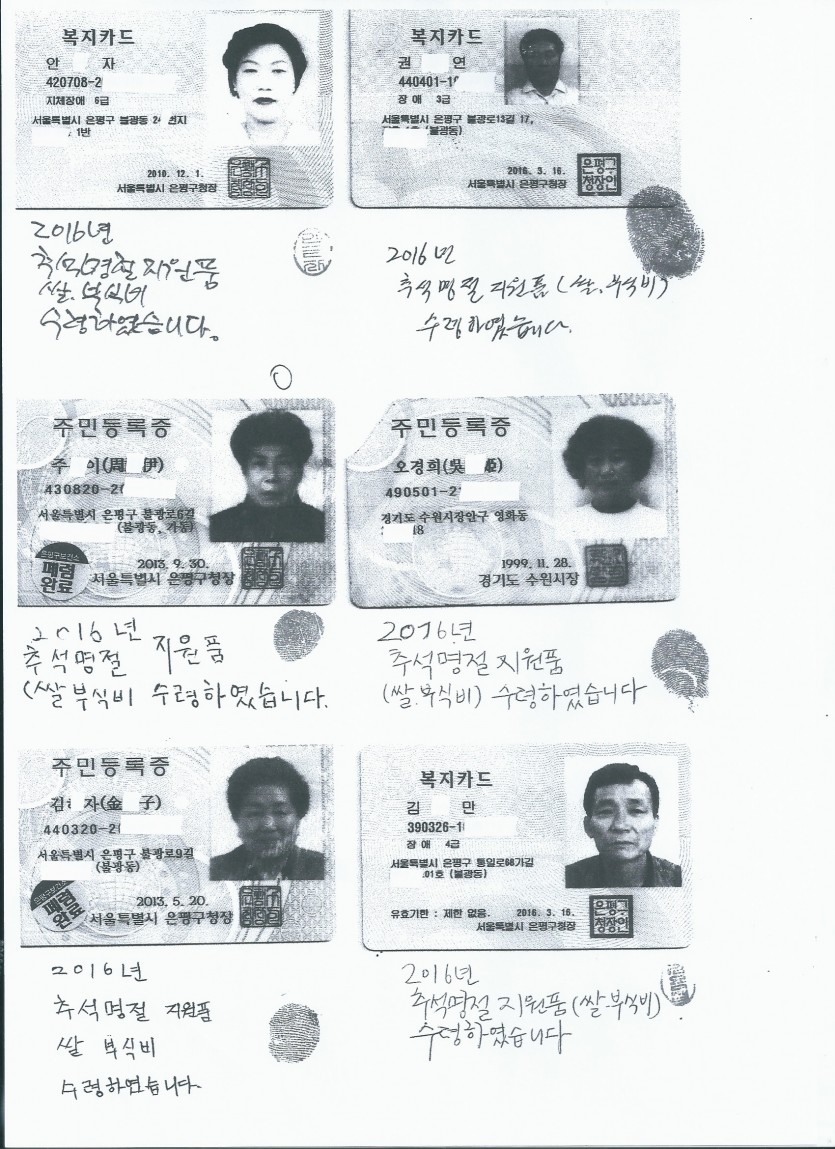 복지카드
안 자
420708-2
지체장애 6급
서울특별시 은평구 불광동
1반
2010. 12. 1.
서울특별시 은평구청장
2016년
추석명절 지원품
쌀.부식비
수령하였습니다.
복지카드
권 연
440401-1
장애 3급
서울특별시 은평구 불광로13길 17,
(불광동)
2016. 3. 16.
서울특별시 은평구청장
은평구
청장인
2016년
추석명절 지원품(쌀.부식비)
수령하였습니다.
주민등록증
주 이(周 伊)
430820-2
서울특별시 은평구 불광로6길
(불광동, 가동)
은평구보건소
폐렴
완료
2013. 9. 30.
서울특별시 은평구청장
2016년
추석명절 지원품
(쌀 부식비 수령하였습니다.
주민등록증
오경희(吳 姬)
490501-2
경기도 수원시장안구 영화동
18
1999. 11. 28.
경기도 수원시장
2016년
추석명절 지원품
(쌀.부식비) 수령하였습니다
주민등록증
김 자(金 子)
440320-2
서울특별시 은평구 불광로9길
(불광동)
은평구보건소
폐렴
완료
2013. 5. 20.
서울특별시 은평구청장
2016년
추석명절 지원품
쌀 부식비
수령하였습니다.
복지카드
김 만
390326-1
장애 4급
서울특별시 은평구 통일로68가길
01호 (불광동)
유효기한 : 제한 없음. 2016. 3. 16.
서울특별시 은평구청장
은평구
청장인
2016년
추석명절 지원품(쌀.부식비)
수령하였습니다